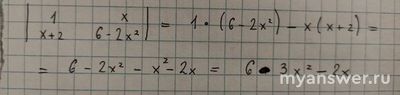 | 1 x | = 1 • (6 - 2x²) - x (x+2) =
| x+2 6 - 2x² |
= 6 - 2x² - x² - 2x = 6 - 3x² - 2x
myanswer.ru